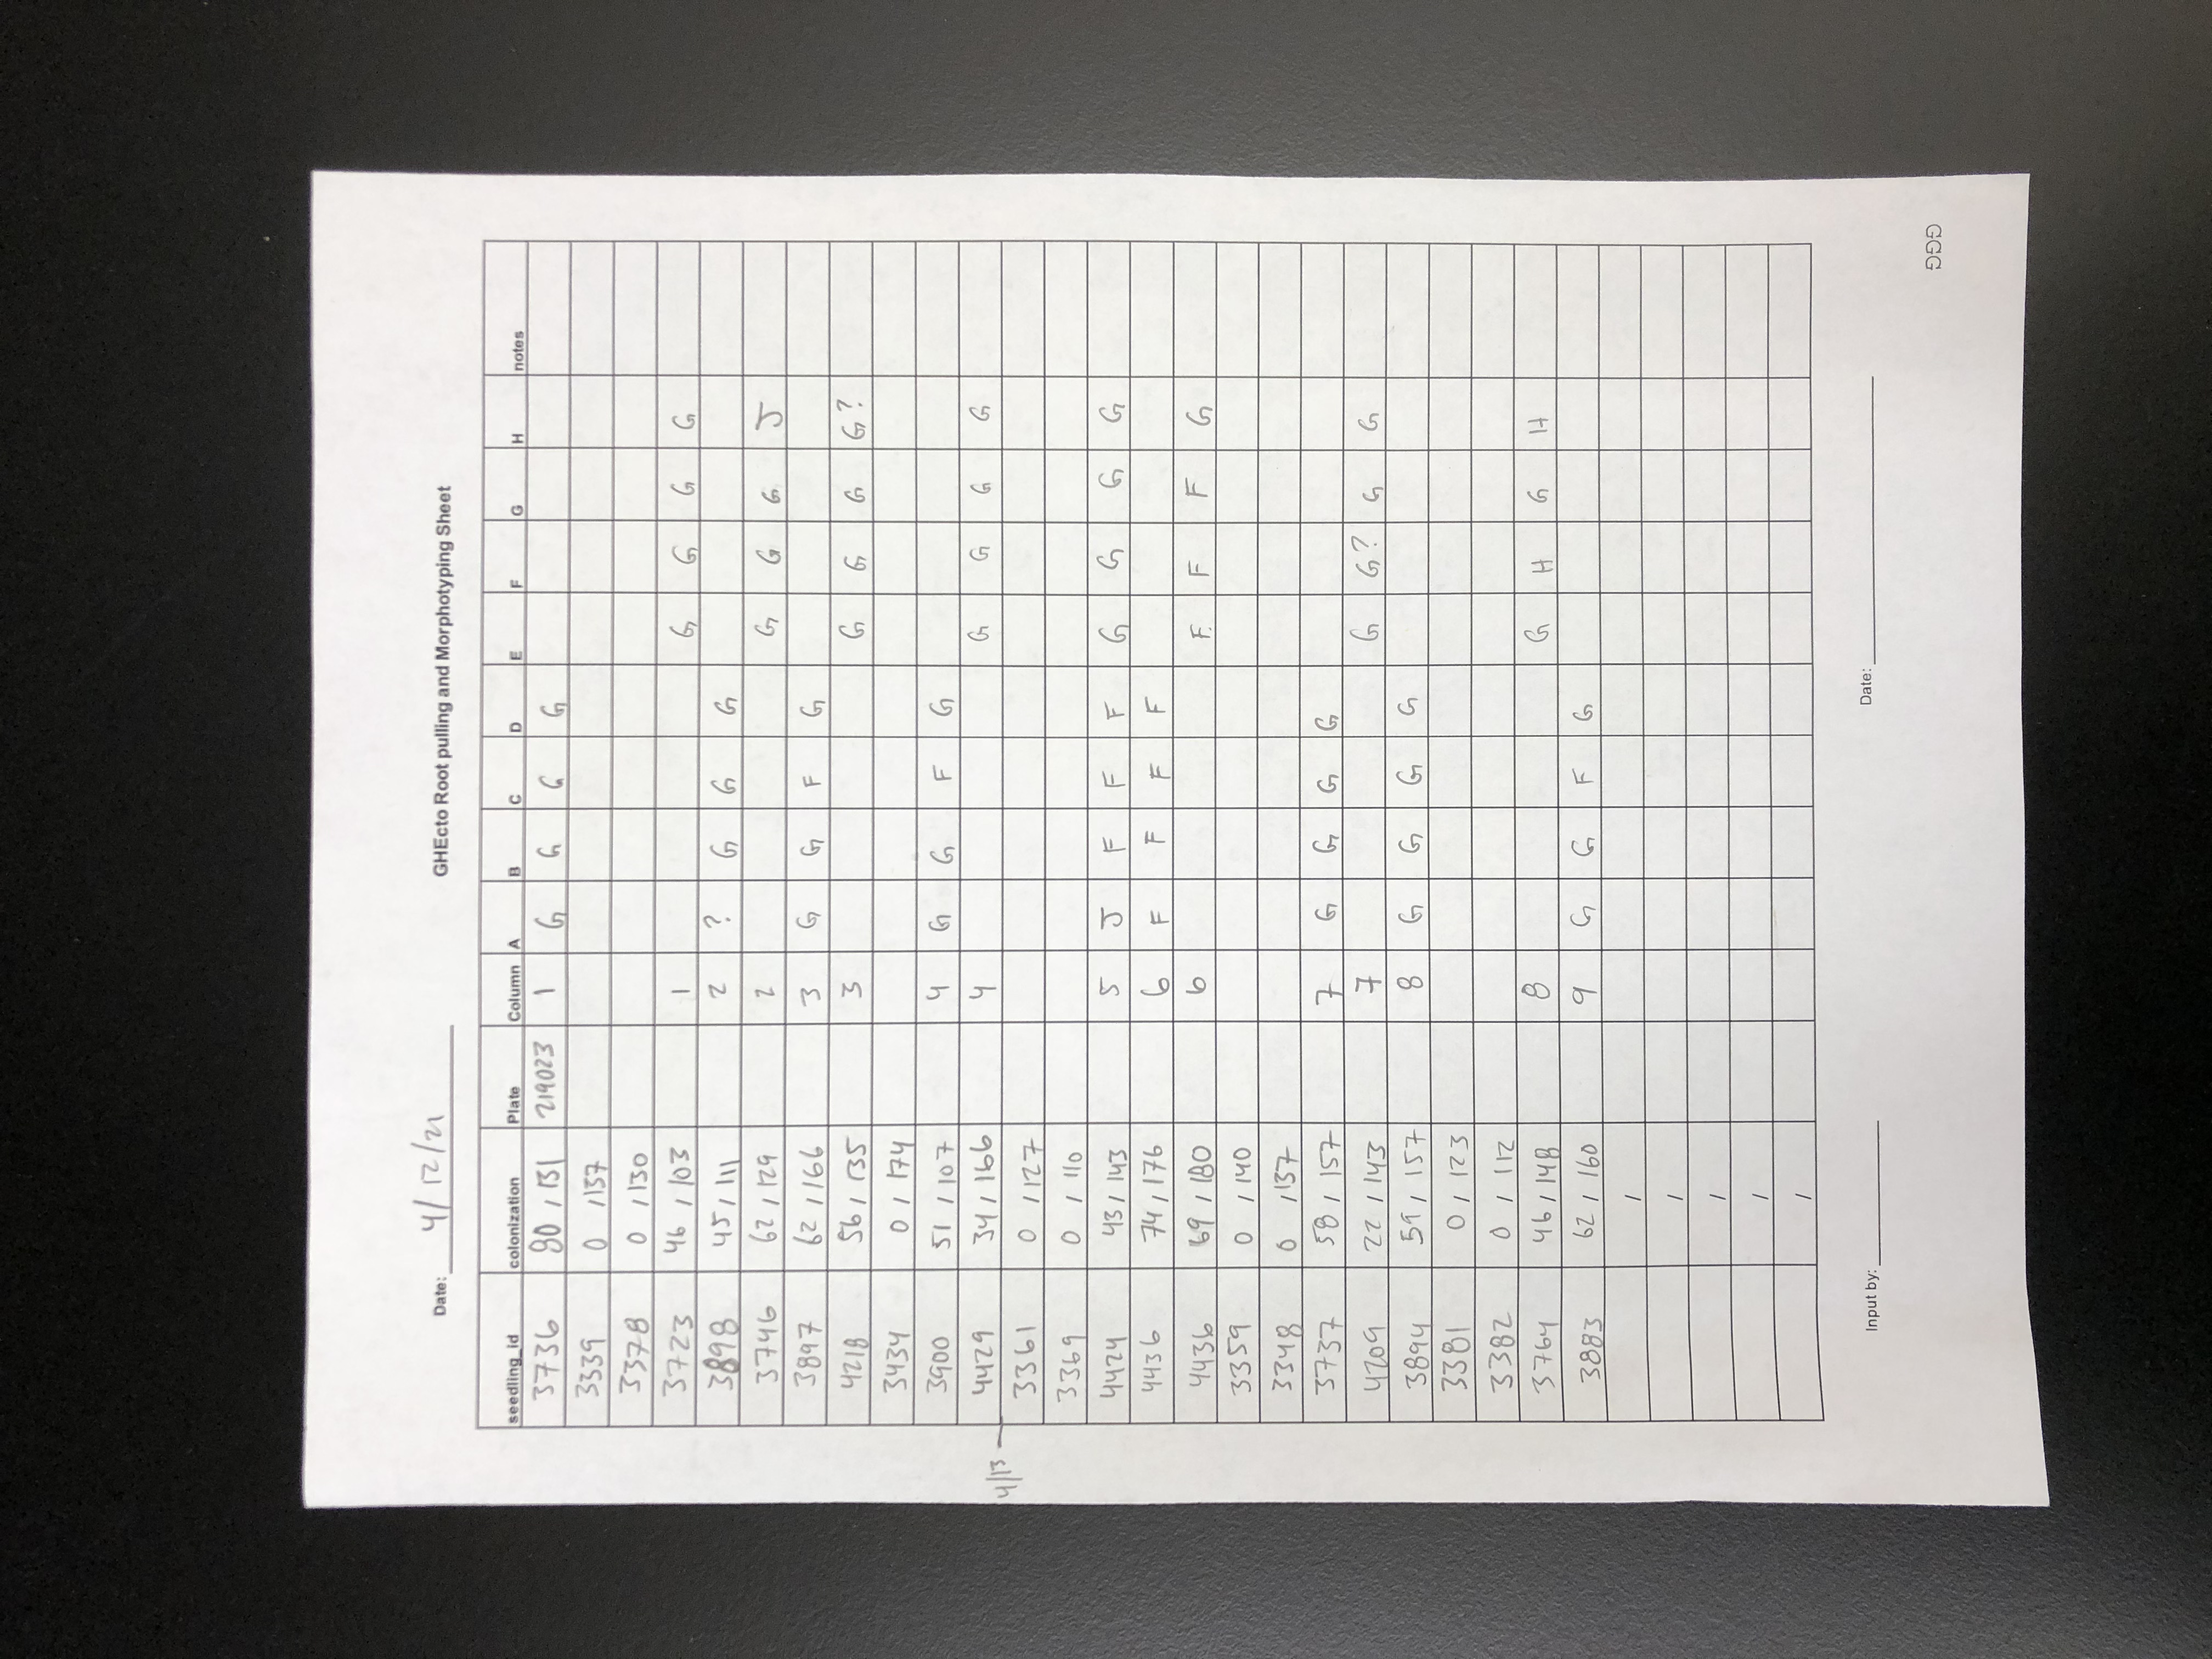 Date: 4/12/21 GHEcto Root pulling and Morphotyping Sheet
seedling_id colonization Plate Column A B C D E F G H notes
3736 80 / 131 219023 1 G G G G
3339 0 / 137
3378 0 / 130
3723 46 / 103 1 G G G G
3898 45 / 111 2 ? G G G
3746 62 / 129 2 G G G J
3897 62 / 166 3 G G F G
4218 56 / 135 3 G G G G?
3434 0 / 174
3900 51 / 107 4 G G F G
4429 34 / 166 4 G G G G
4/13
3361 0 / 127
3369 0 / 110
4424 43 / 143 5 J F F F G G G G
4436 74 / 176 6 F F F F
4436 69 / 180 6 F F F G
3359 0 / 140
3348 0 / 137
3737 58 / 157 7 G G G G
4209 22 / 143 7 G G? G G
3894 59 / 157 8 G G G G
3381 0 / 123
3382 0 / 112
3764 46 / 148 8 G H G H
3883 62 / 160 9 G G F G
/
/
/
/
/
Input by: Date:
GGG